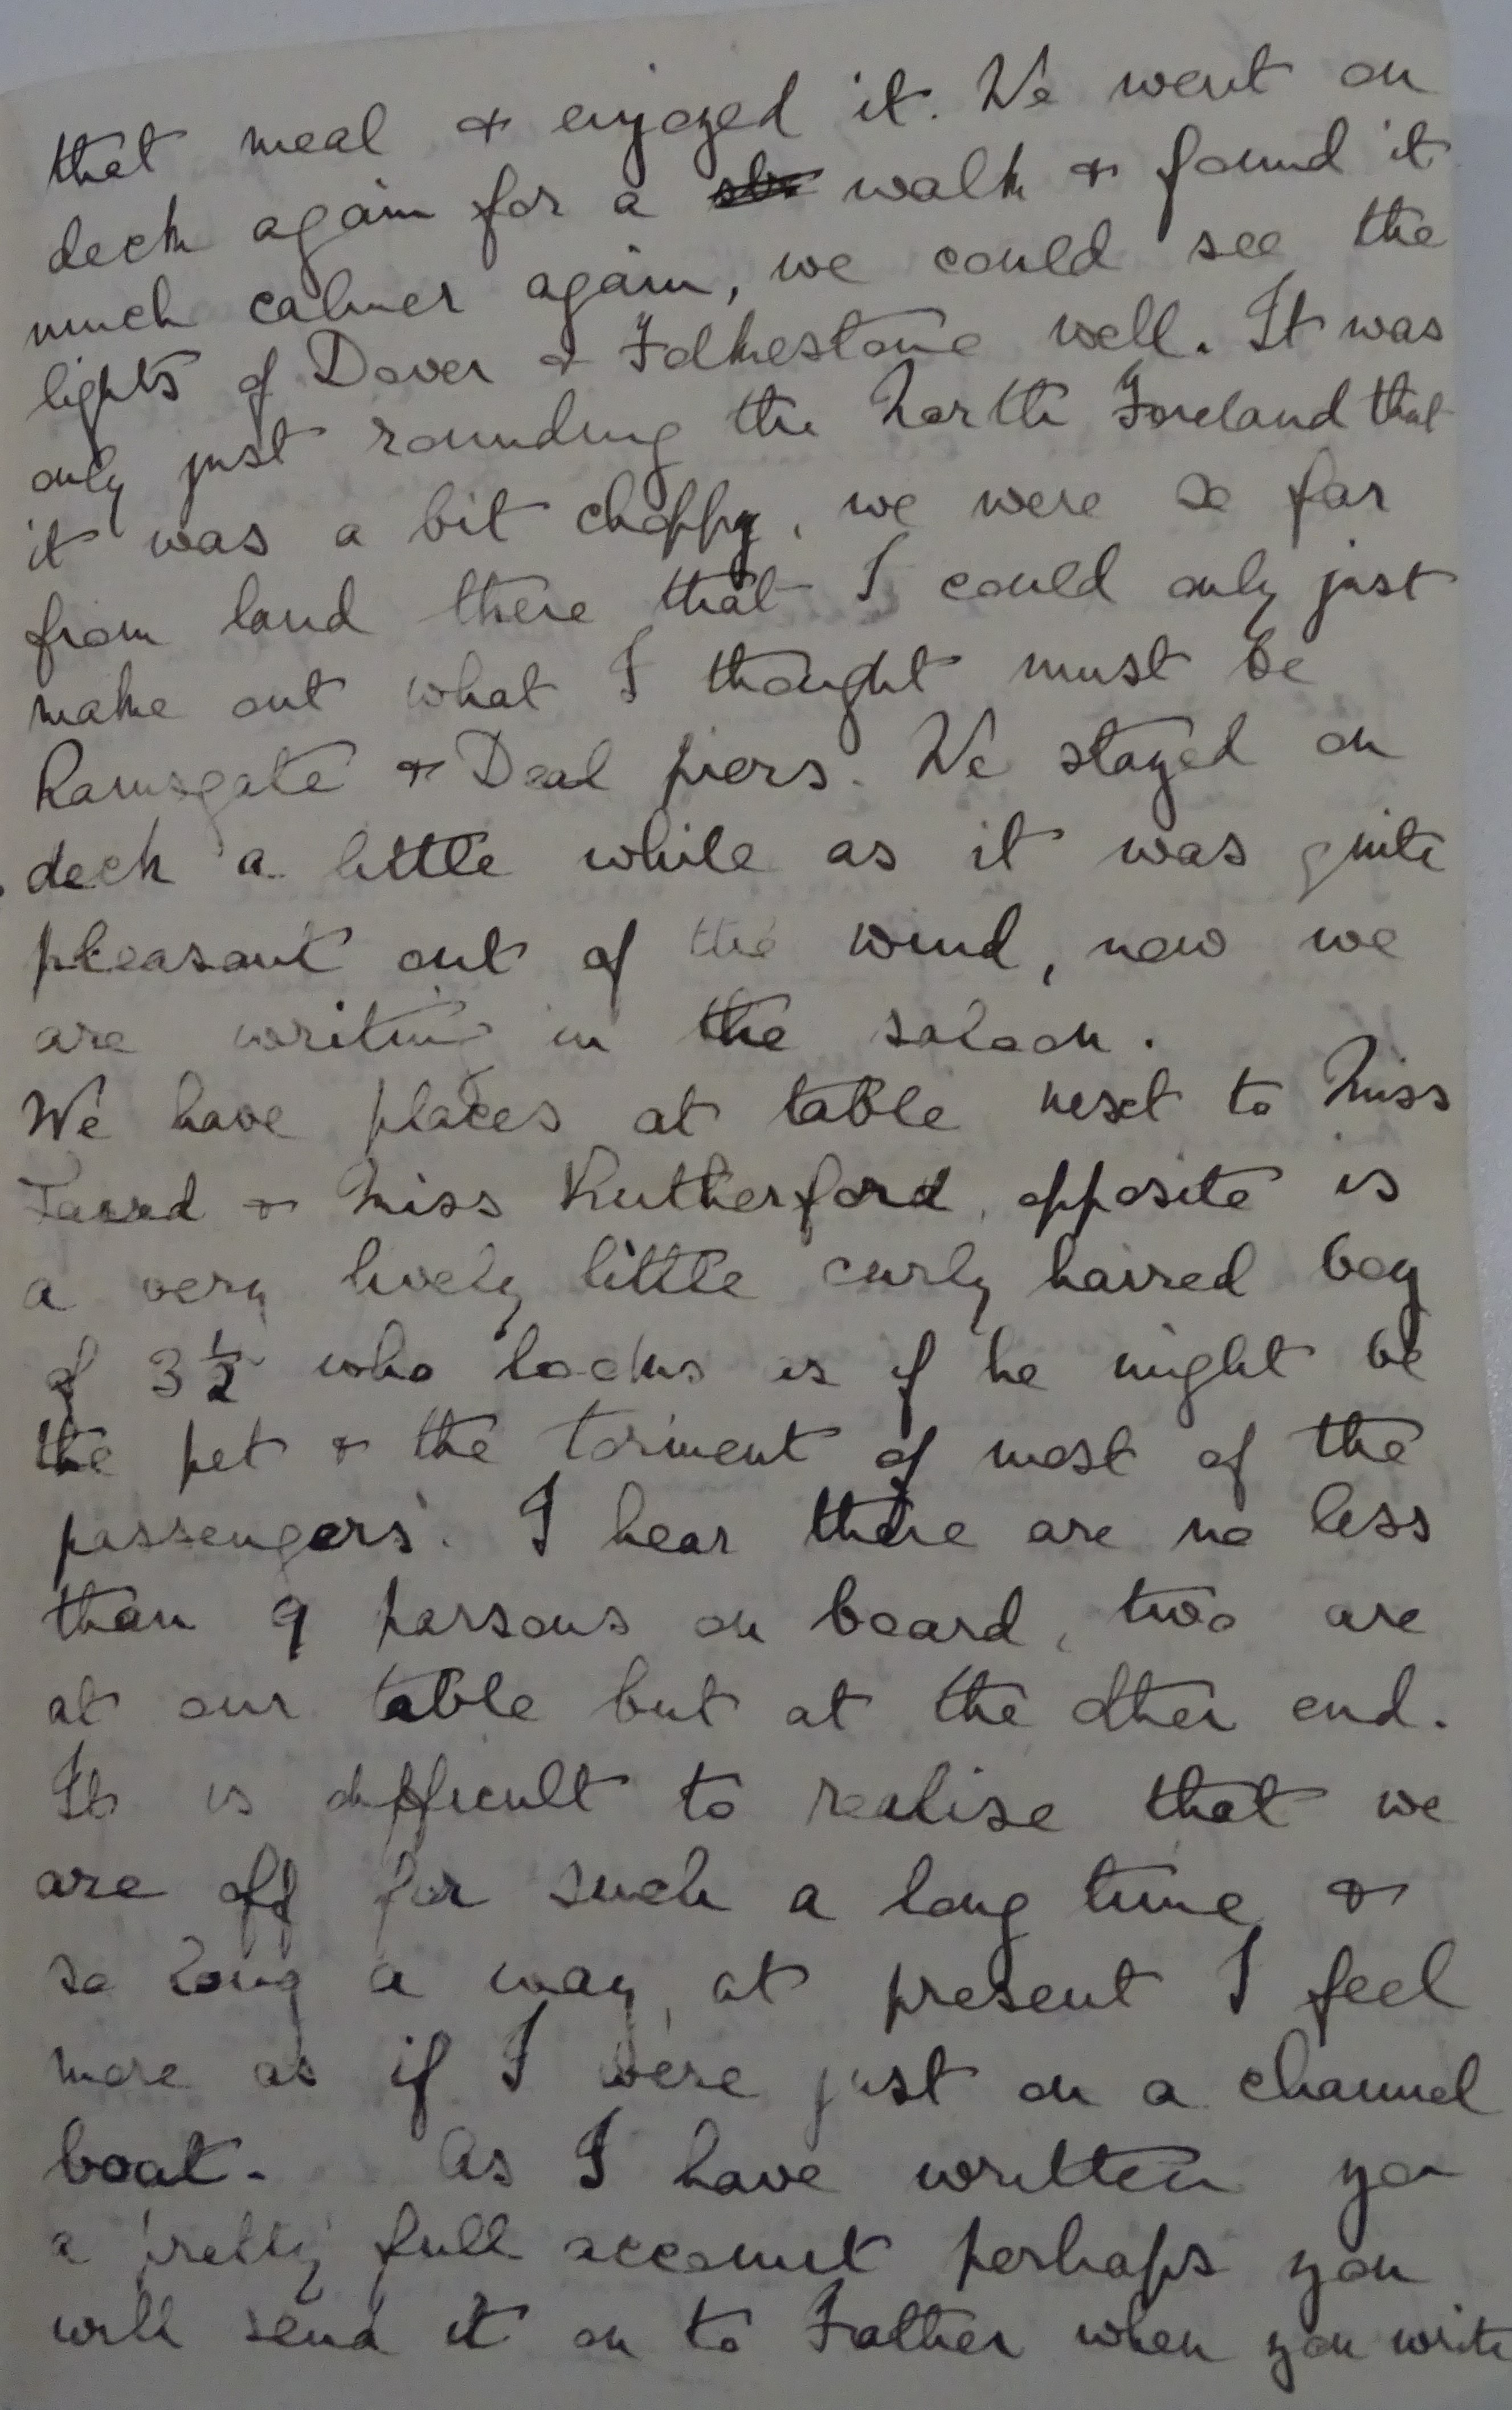 that meal & enjoyed it. We went on
deck again for a walk & found it
much calmer again, we could see the
lights of Dover & Folkestone well. It was
only just rounding the North Foreland that
it was a bit choppy, we were so far
from land there that I could only just
make out what I thought must be
Ramsgate & Deal piers. We stayed on
deck a little while as it was quite
pleasant out of the wind, now we
are writing in the saloon.
We have places at table next to Miss
& Miss Rutherford, opposite is
a very lively little curly haired boy
of 3½ who looks as if he might be
the pet & the torment of most of the
passengers. I hear there are no less
than 9 parsons on board, two are
at our table but at the other end.
It is difficult to realise that we
are off for such a long time &
so long a way, at present I feel
more as if I were just on a channel
boat. As I have written you
a pretty full account perhaps you
will send it on to Father when you write